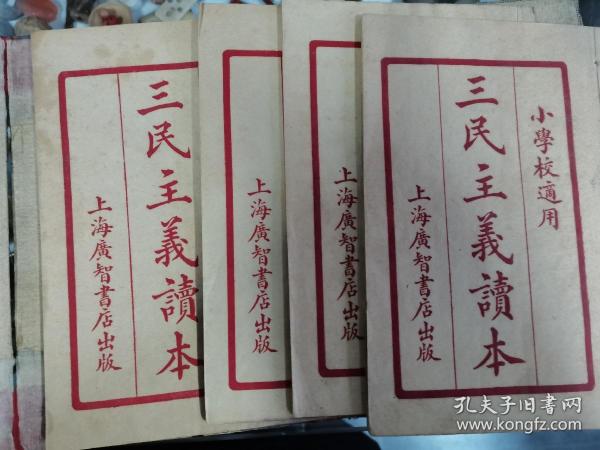 小學校適用
三民主義讀本
上海廣智書店出版
上海廣智書店出版
上海廣智書店出版
三民主義讀本
上海廣智書店出版
孔夫子旧书网
www.kongfz.com